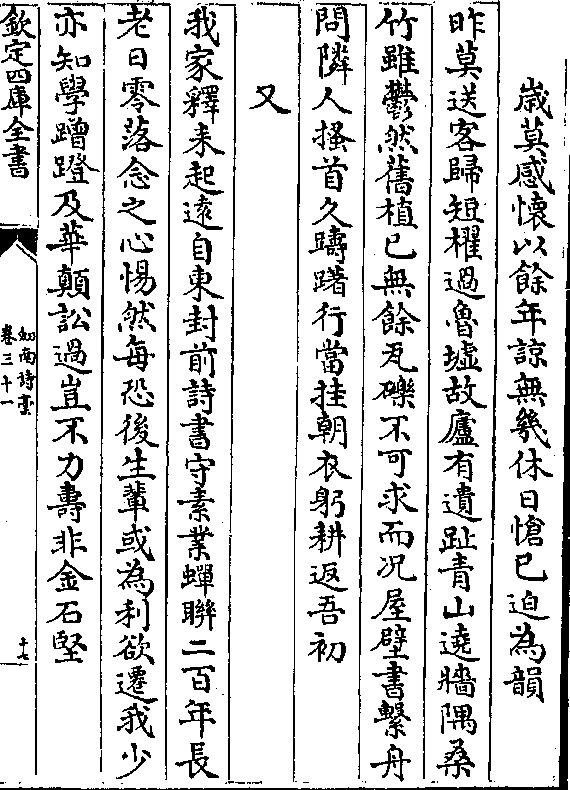 歳莫感懐以餘年諒無幾休日愴已迫為韻
昨莫送客歸短櫂過魯墟故廬有遺趾青山遶牆隅桑
竹雖鬱然舊植已無餘瓦礫不可求而况屋壁書繫舟
問隣人搔首久躊躇行當挂朝衣躬耕返吾初
又
我家釋耒起逺自東封前詩書守素業蟬聯二百年長
老日零落念之心惕然每恐後生輩或為利欲遷我少
亦知學蹭蹬及華顛訟過豈不力壽非金石堅
欽定四庫全書
劍南詩藁
卷三十一
十七